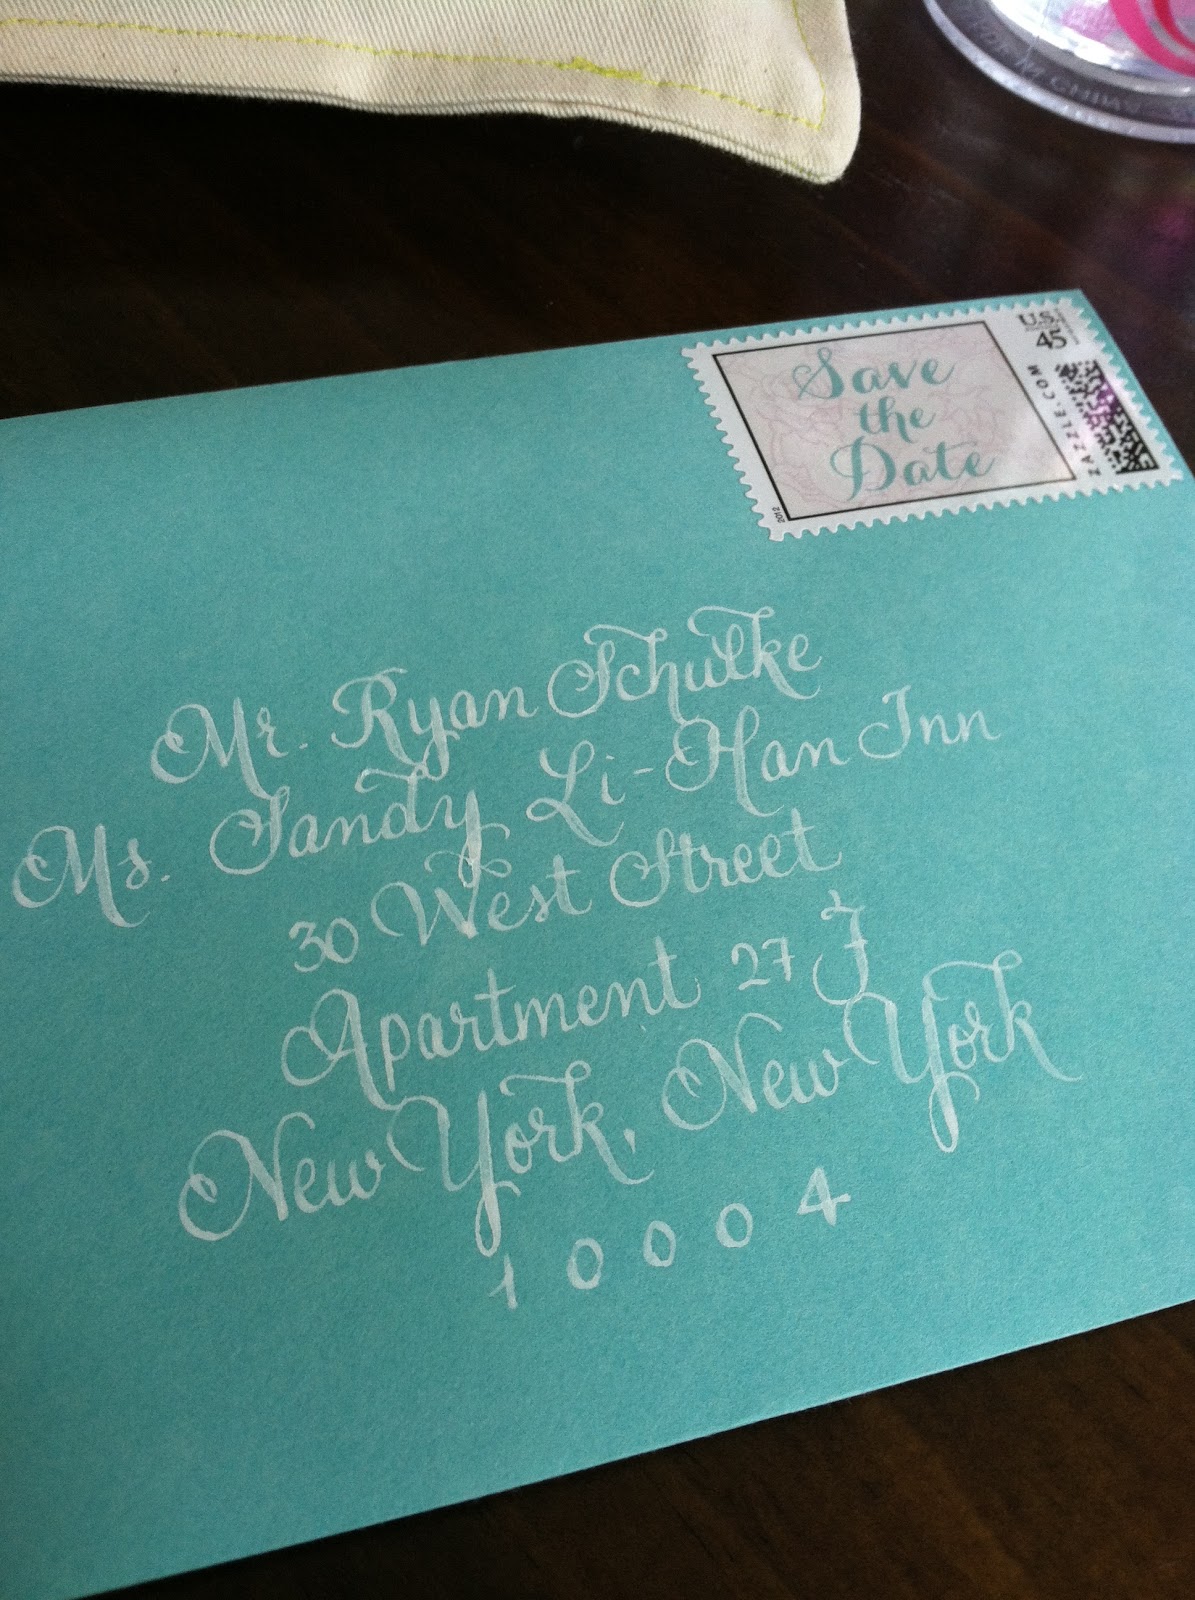 U.S.
45
ZAZZLE.COM
Save
the
Date
2012
Mr. Ryan Schulke
Ms. Sandy Li-Han Inn
30 West Street
Apartment 27 J
New York, New York
10004